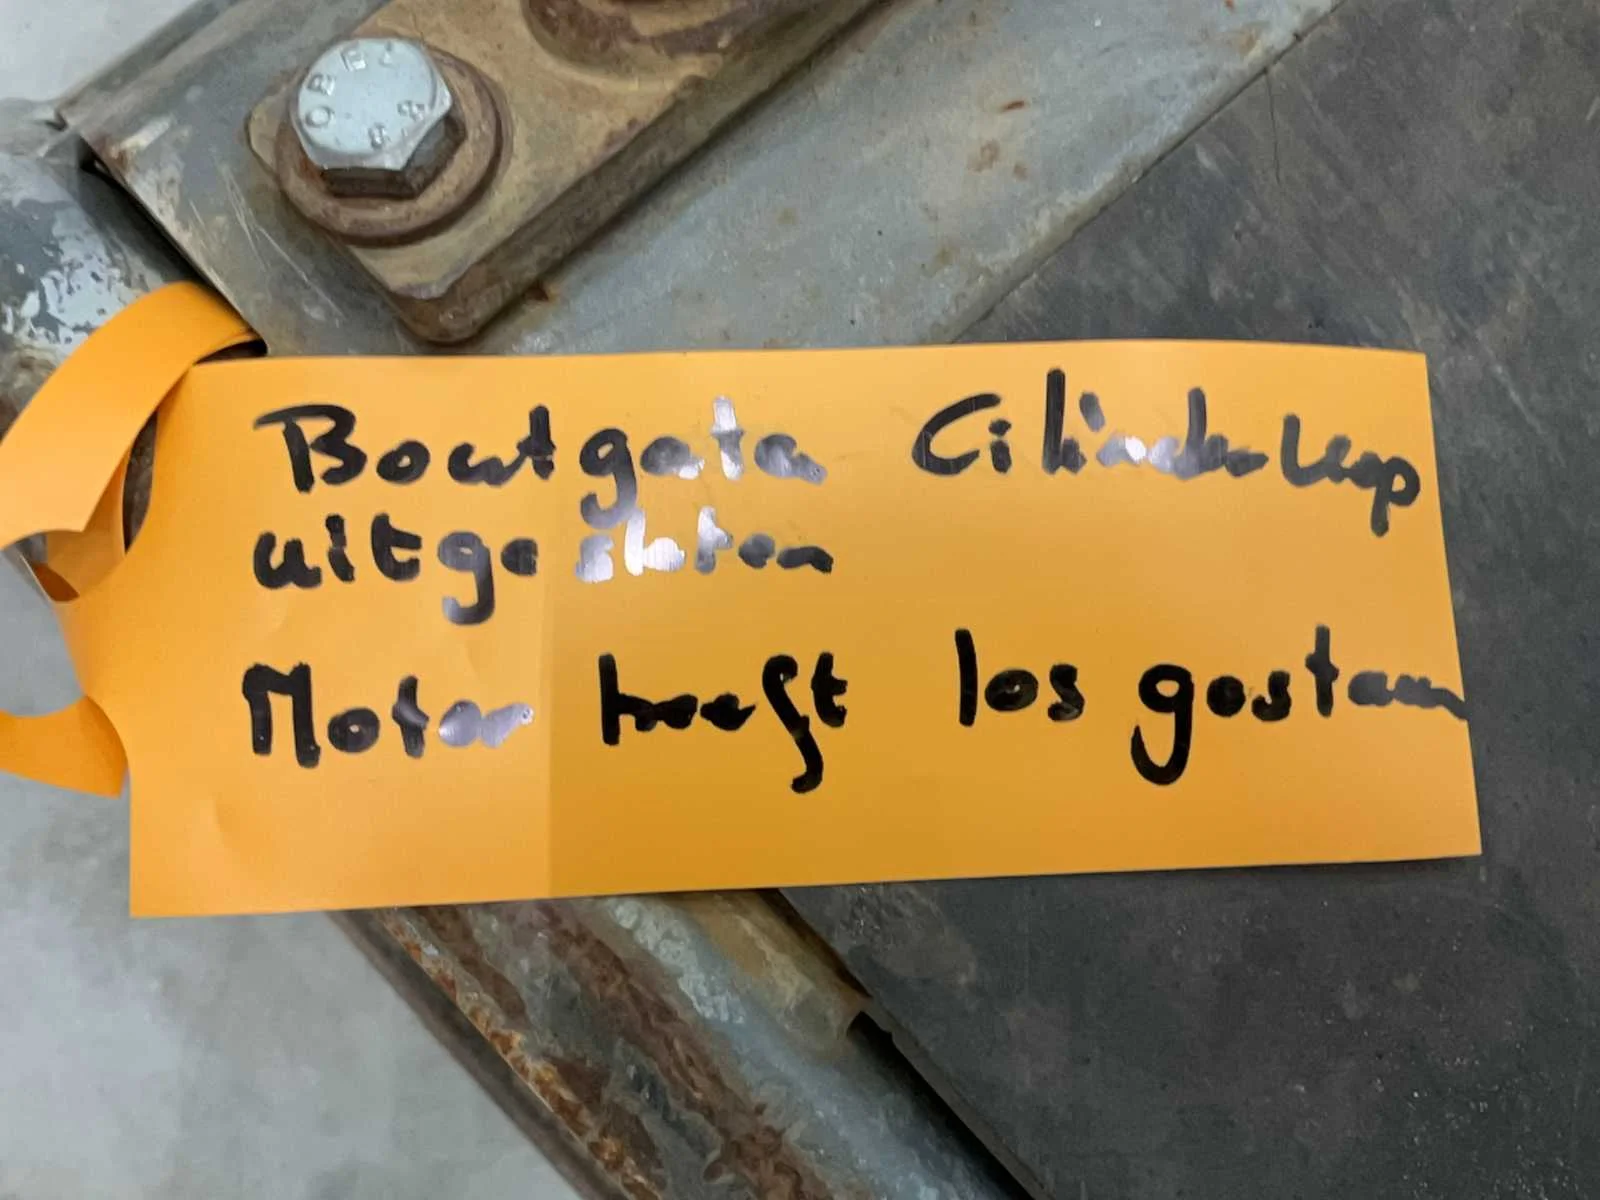 OBEL
8.8
Boutgaten Cilinderkop
uitgesleten
Motor heeft los gestaan